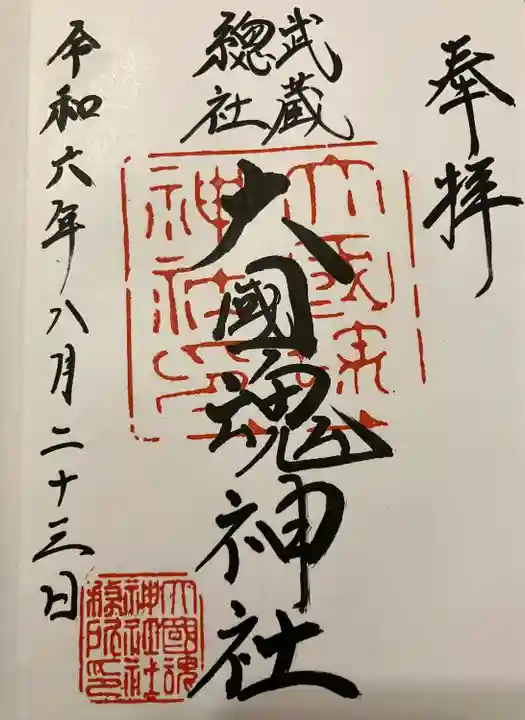 奉拝
武蔵
總社
大國魂神社
令和六年八月二十三日
大國魂
神社
大國魂
神社社
務所印